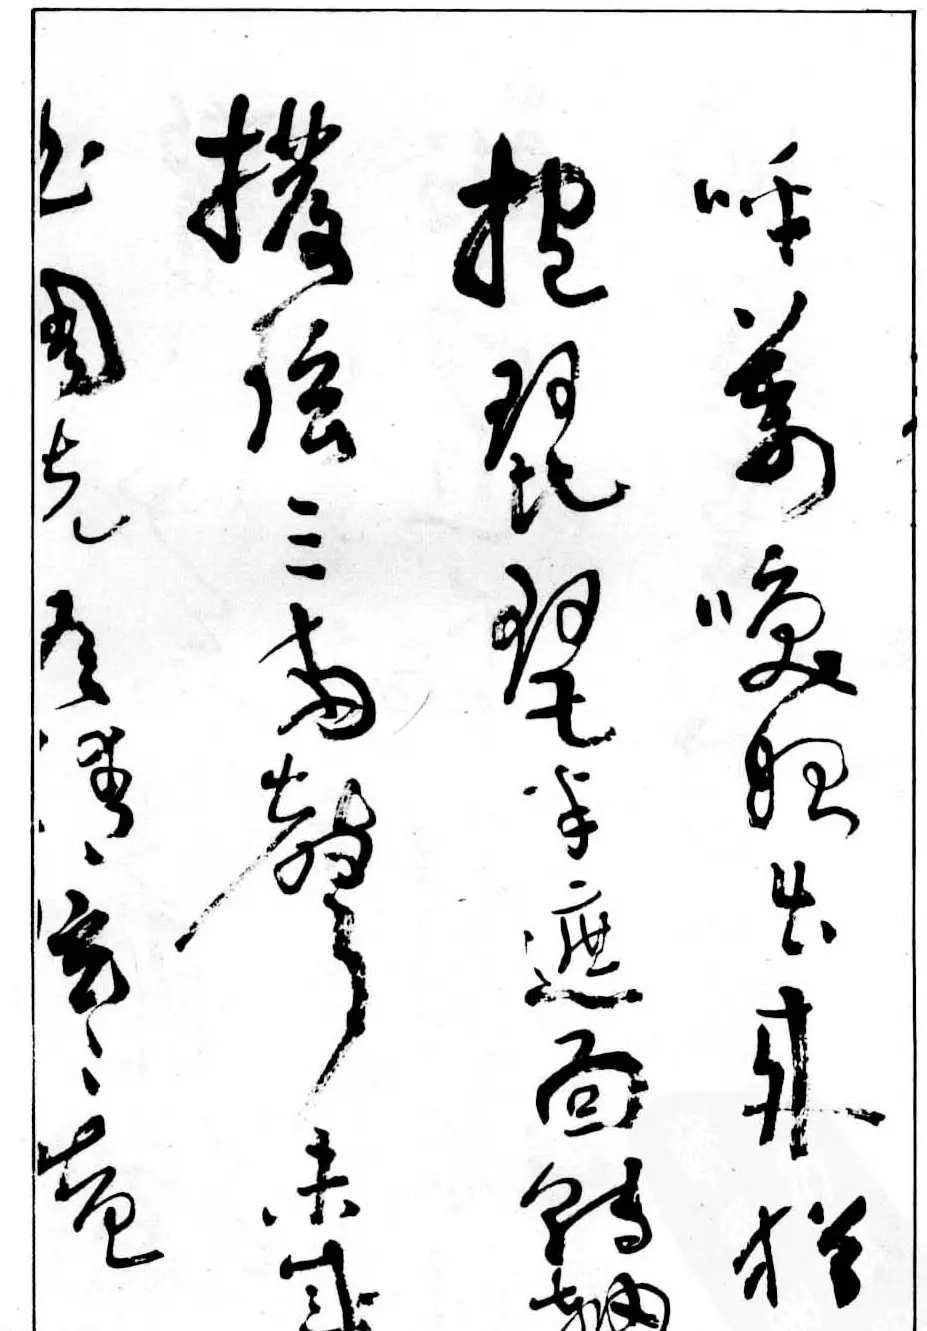 呼萬喚始出來猶
抱琵琶半遮面轉軸
撥弦三兩聲未成
曲調先有情弦〻掩